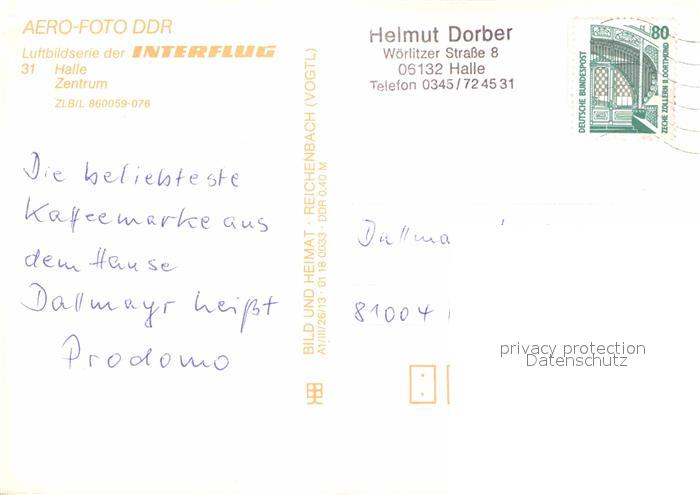 AERO-FOTO DDR
Luftbildserie der INTERFLUG
31 Halle
Zentrum
ZLB/L 860059-076
Die beliebteste
Kaffeemarke aus
dem Hause
Dallmayr heißt
Prodomo
BILD UND HEIMAT · REICHENBACH (VOGTL)
A1/III/26/13 · 01 18 0033 · DDR 0,40 M
Helmut Dorber
Wörlitzer Straße 8
06132 Halle
Telefon 0345/72 45 31
80
DEUTSCHE BUNDESPOST
ZECHE ZOLLERN II, DORTMUND
Dallma
81004
privacy protection
Datenschutz